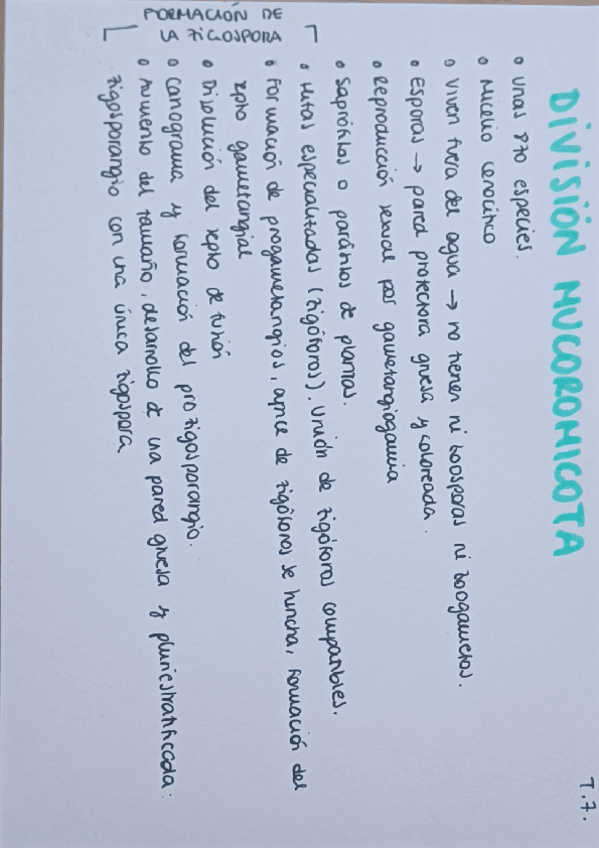 T.7.
DIVISIÓN MUCOROMICOTA
• unas 870 especies.
• Micelio cenocítico
• Viven fuera del agua → no tienen ni zoosporas ni zoogametos.
• Esporas → pared protectora gruesa y coloreada.
• Reproducción sexual por gametangiogamia
• Saprófitos o parásitos de plantas.
FORMACIÓN DE
LA ZIGOSPORA
• Hifas especializadas (zigóforos). Unión de zigóforos compatibles.
• Formación de progametangios, apice de zigóforos se hincha, formación del
septo gametangial
• Disolución del septo de fusión
• Cariogamia y formación del prozigosporangio.
• Aumento del tamaño, desarrollo de una pared gruesa y pluriestratificada:
zigosporangio con una única zigospora